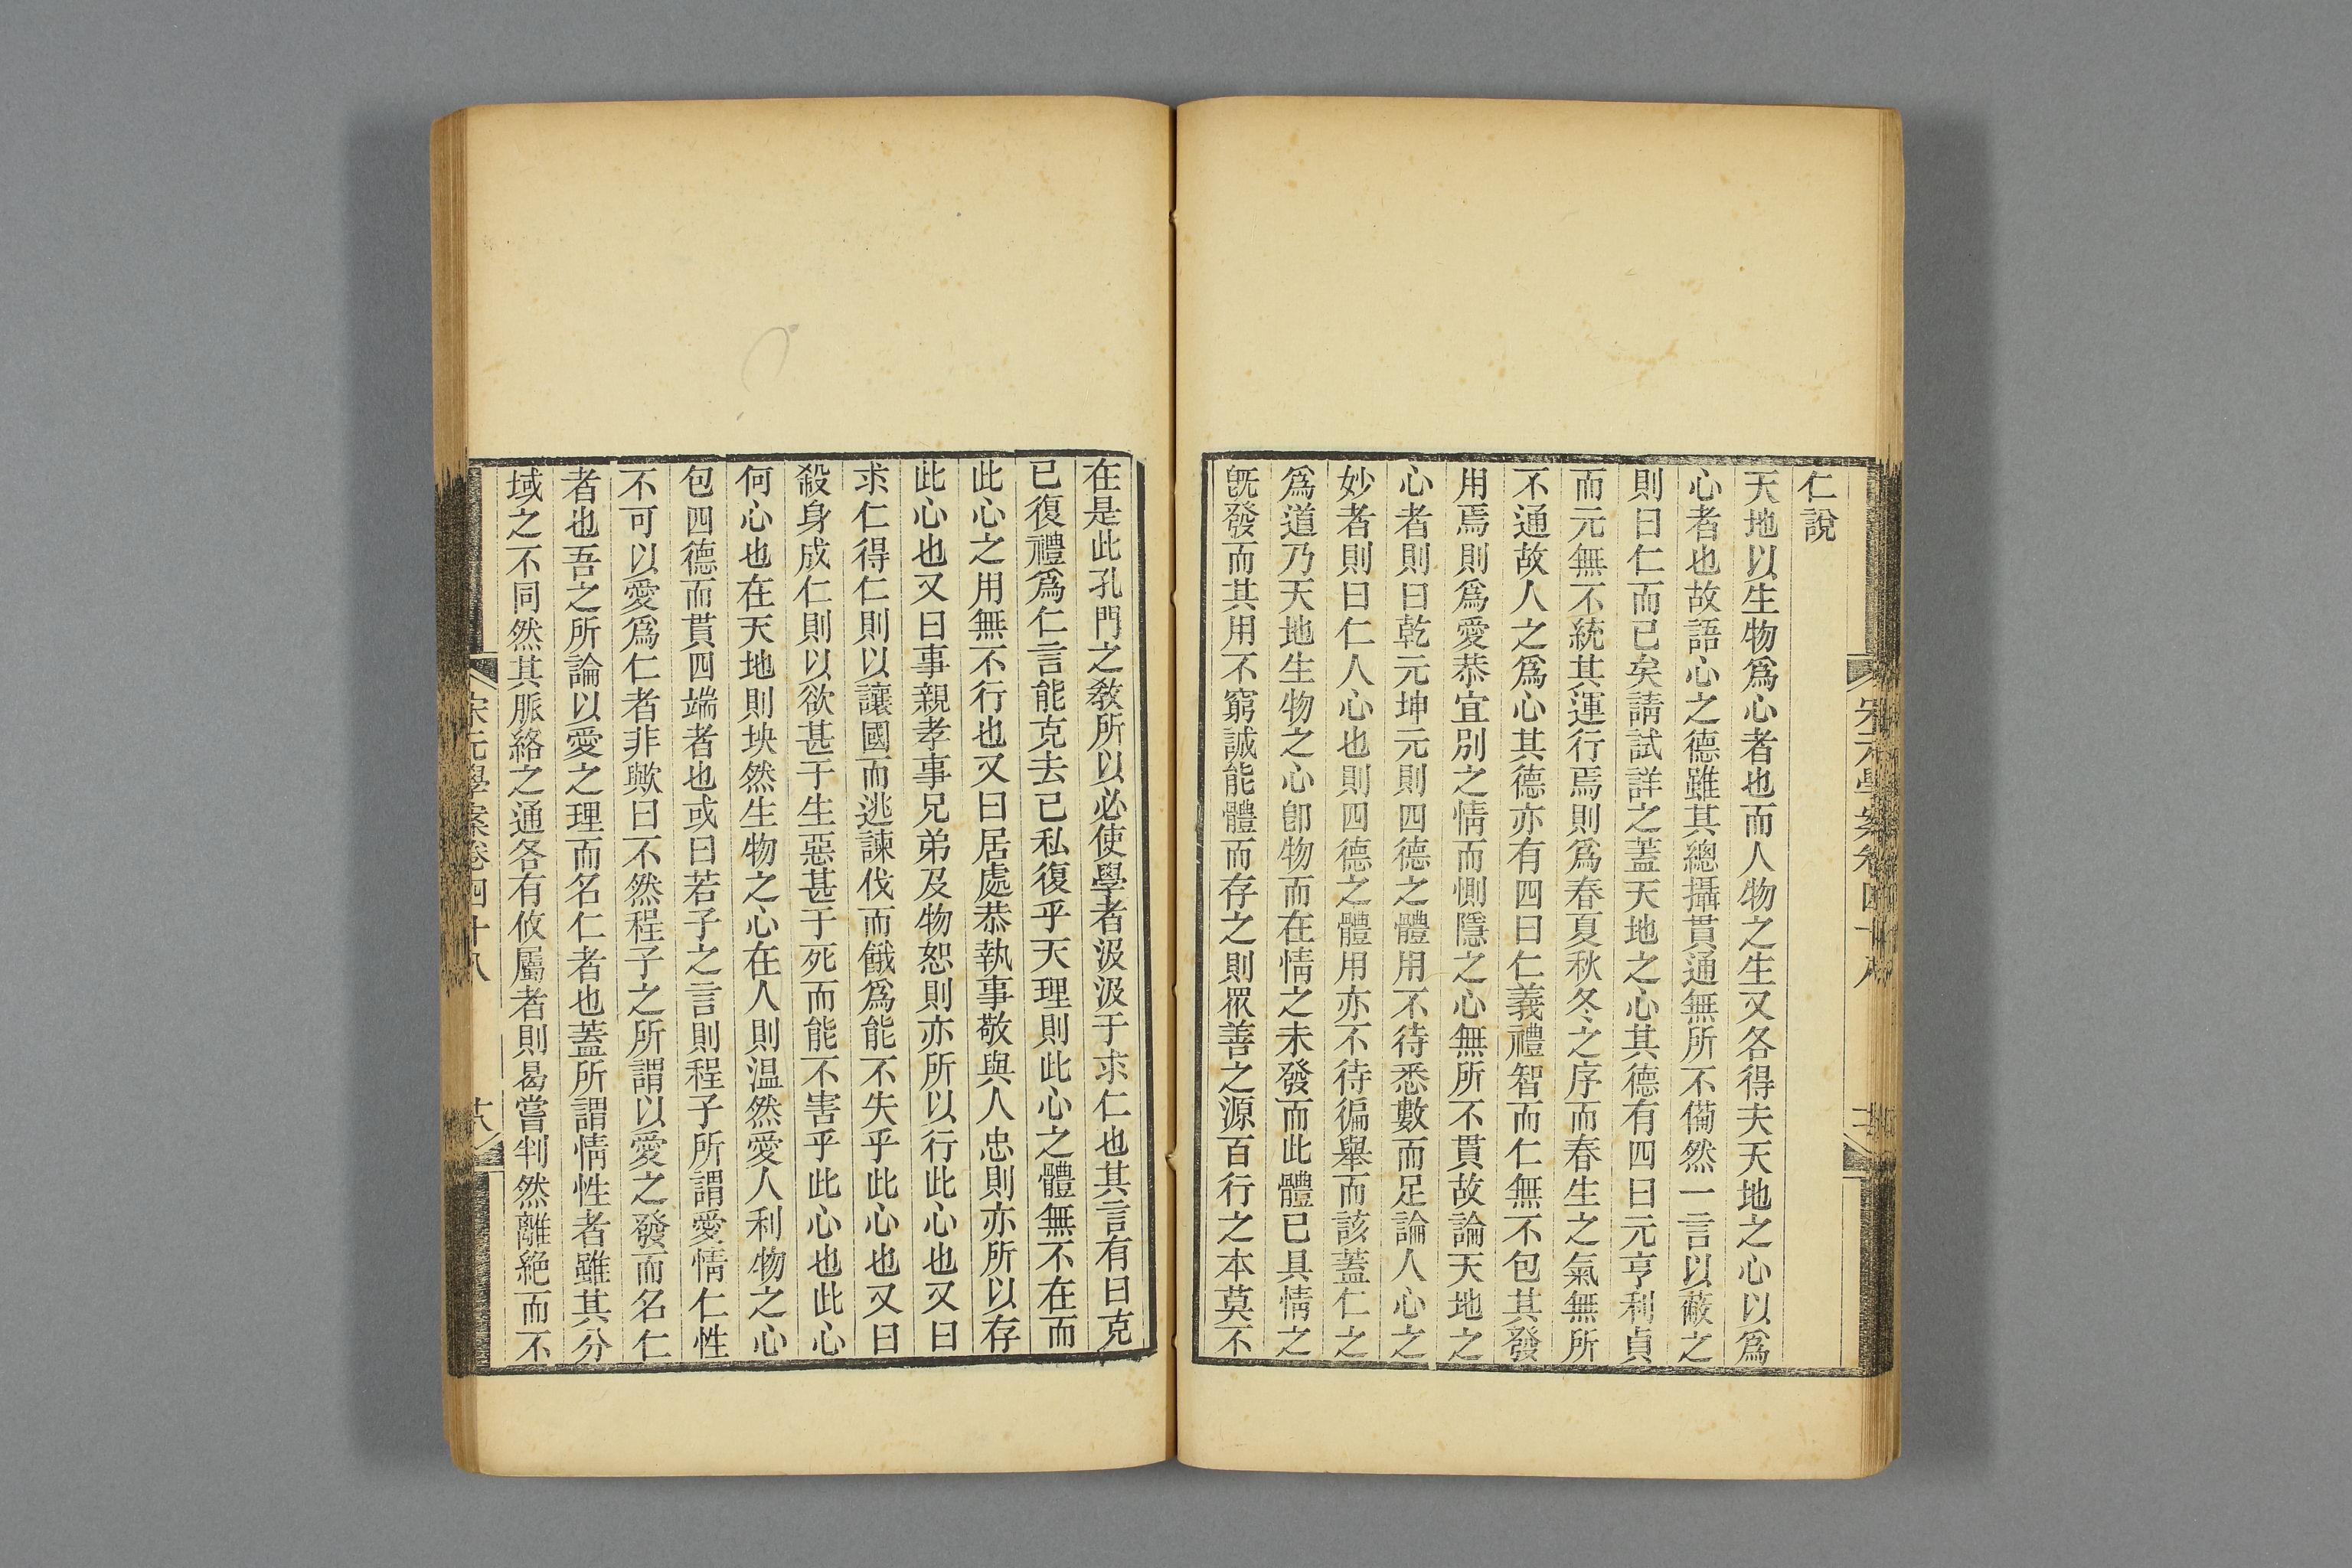 仁說
天地以生物爲心者也而人物之生又各得夫天地之心以爲
心者也故語心之德雖其總攝貫通無所不僃然一言以蔽之
則曰仁而已矣請試詳之蓋天地之心其德有四曰元亨利貞
而元無不統其運行焉則爲春夏秋冬之序而春生之氣無所
不通故人之爲心其德亦有四曰仁義禮智而仁無不包其發
用焉則爲愛恭宜別之情而惻隱之心無所不貫故論天地之
心者則曰乾元坤元則四德之體用不待悉數而足論人心之
妙者則曰仁人心也則四德之體用亦不待徧舉而該蓋仁之
爲道乃天地生物之心卽物而在情之未發而此體已具情之
旣發而其用不窮誠能體而存之則眾善之源百行之本莫不
在是此孔門之敎所以必使學者汲汲于求仁也其言有曰克
已復禮爲仁言能克去已私復乎天理則此心之體無不在而
此心之用無不行也又曰居處恭執事敬與人忠則亦所以存
此心也又曰事親孝事兄弟及物恕則亦所以行此心也又曰
求仁得仁則以讓國而逃諫伐而餓爲能不失乎此心也又曰
殺身成仁則以欲甚于生惡甚于死而能不害乎此心也此心
何心也在天地則坱然生物之心在人則温然愛人利物之心
包四德而貫四端者也或曰若子之言則程子所謂愛情仁性
不可以愛爲仁者非歟曰不然程子之所謂以愛之發而名仁
者也吾之所論以愛之理而名仁者也蓋所謂情性者雖其分
域之不同然其脈絡之通各有攸屬者則曷嘗判然離絕而不
宋元學案卷四十八